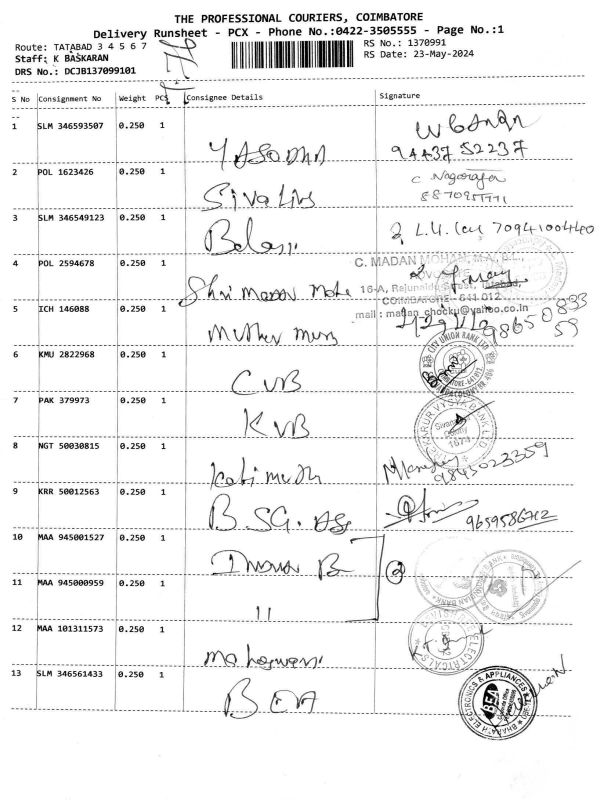 THE PROFESSIONAL COURIERS, COIMBATORE
Delivery Runsheet - PCX - Phone No.:0422-3505555 - Page No.:1
Route: TATABAD 3 4 5 6 7
RS No.: 1370991
Staff: K BASKARAN
RS Date: 23-May-2024
DRS No.: DCJB137099101
S No Consignment No Weight PCS Consignee Details Signature
1 SLM 346593507 0.250 1 YASODHA
94437 52237
2 POL 1623426 0.250 1 Sivaling C Nagarajan
8870951771
3 SLM 346549123 0.250 1 Balaji 7094100440
4 POL 2594678 0.250 1 Shri madav
C. MADAN MOHAN, M.A., B.L.,
ADVOCATE
16-A, Rajunaidu Street, Tatabad,
COIMBATORE - 641 012.
mail : madan_chocku@yahoo.co.in
5 ICH 146088 0.250 1 Muthu
98650 833
59
6 KMU 2822968 0.250 1 CUB
CITY UNION BANK LTD
7 PAK 379973 0.250 1 KVB
THE KARUR VYSYA BANK LTD.
Sivananda
Colony
1674
8 NGT 50030815 0.250 1
9843023359
9 KRR 50012563 0.250 1 B SG.
9659586712
10 MAA 945001527 0.250 1 Indian B 2
INDIAN BANK
11 MAA 945000959 0.250 1 11
12 MAA 101311573 0.250 1
ELECTRICALS
13 SLM 346561433 0.250 1 BEA
BHARATH ELECTRONICS & APPLIANCES
BEA